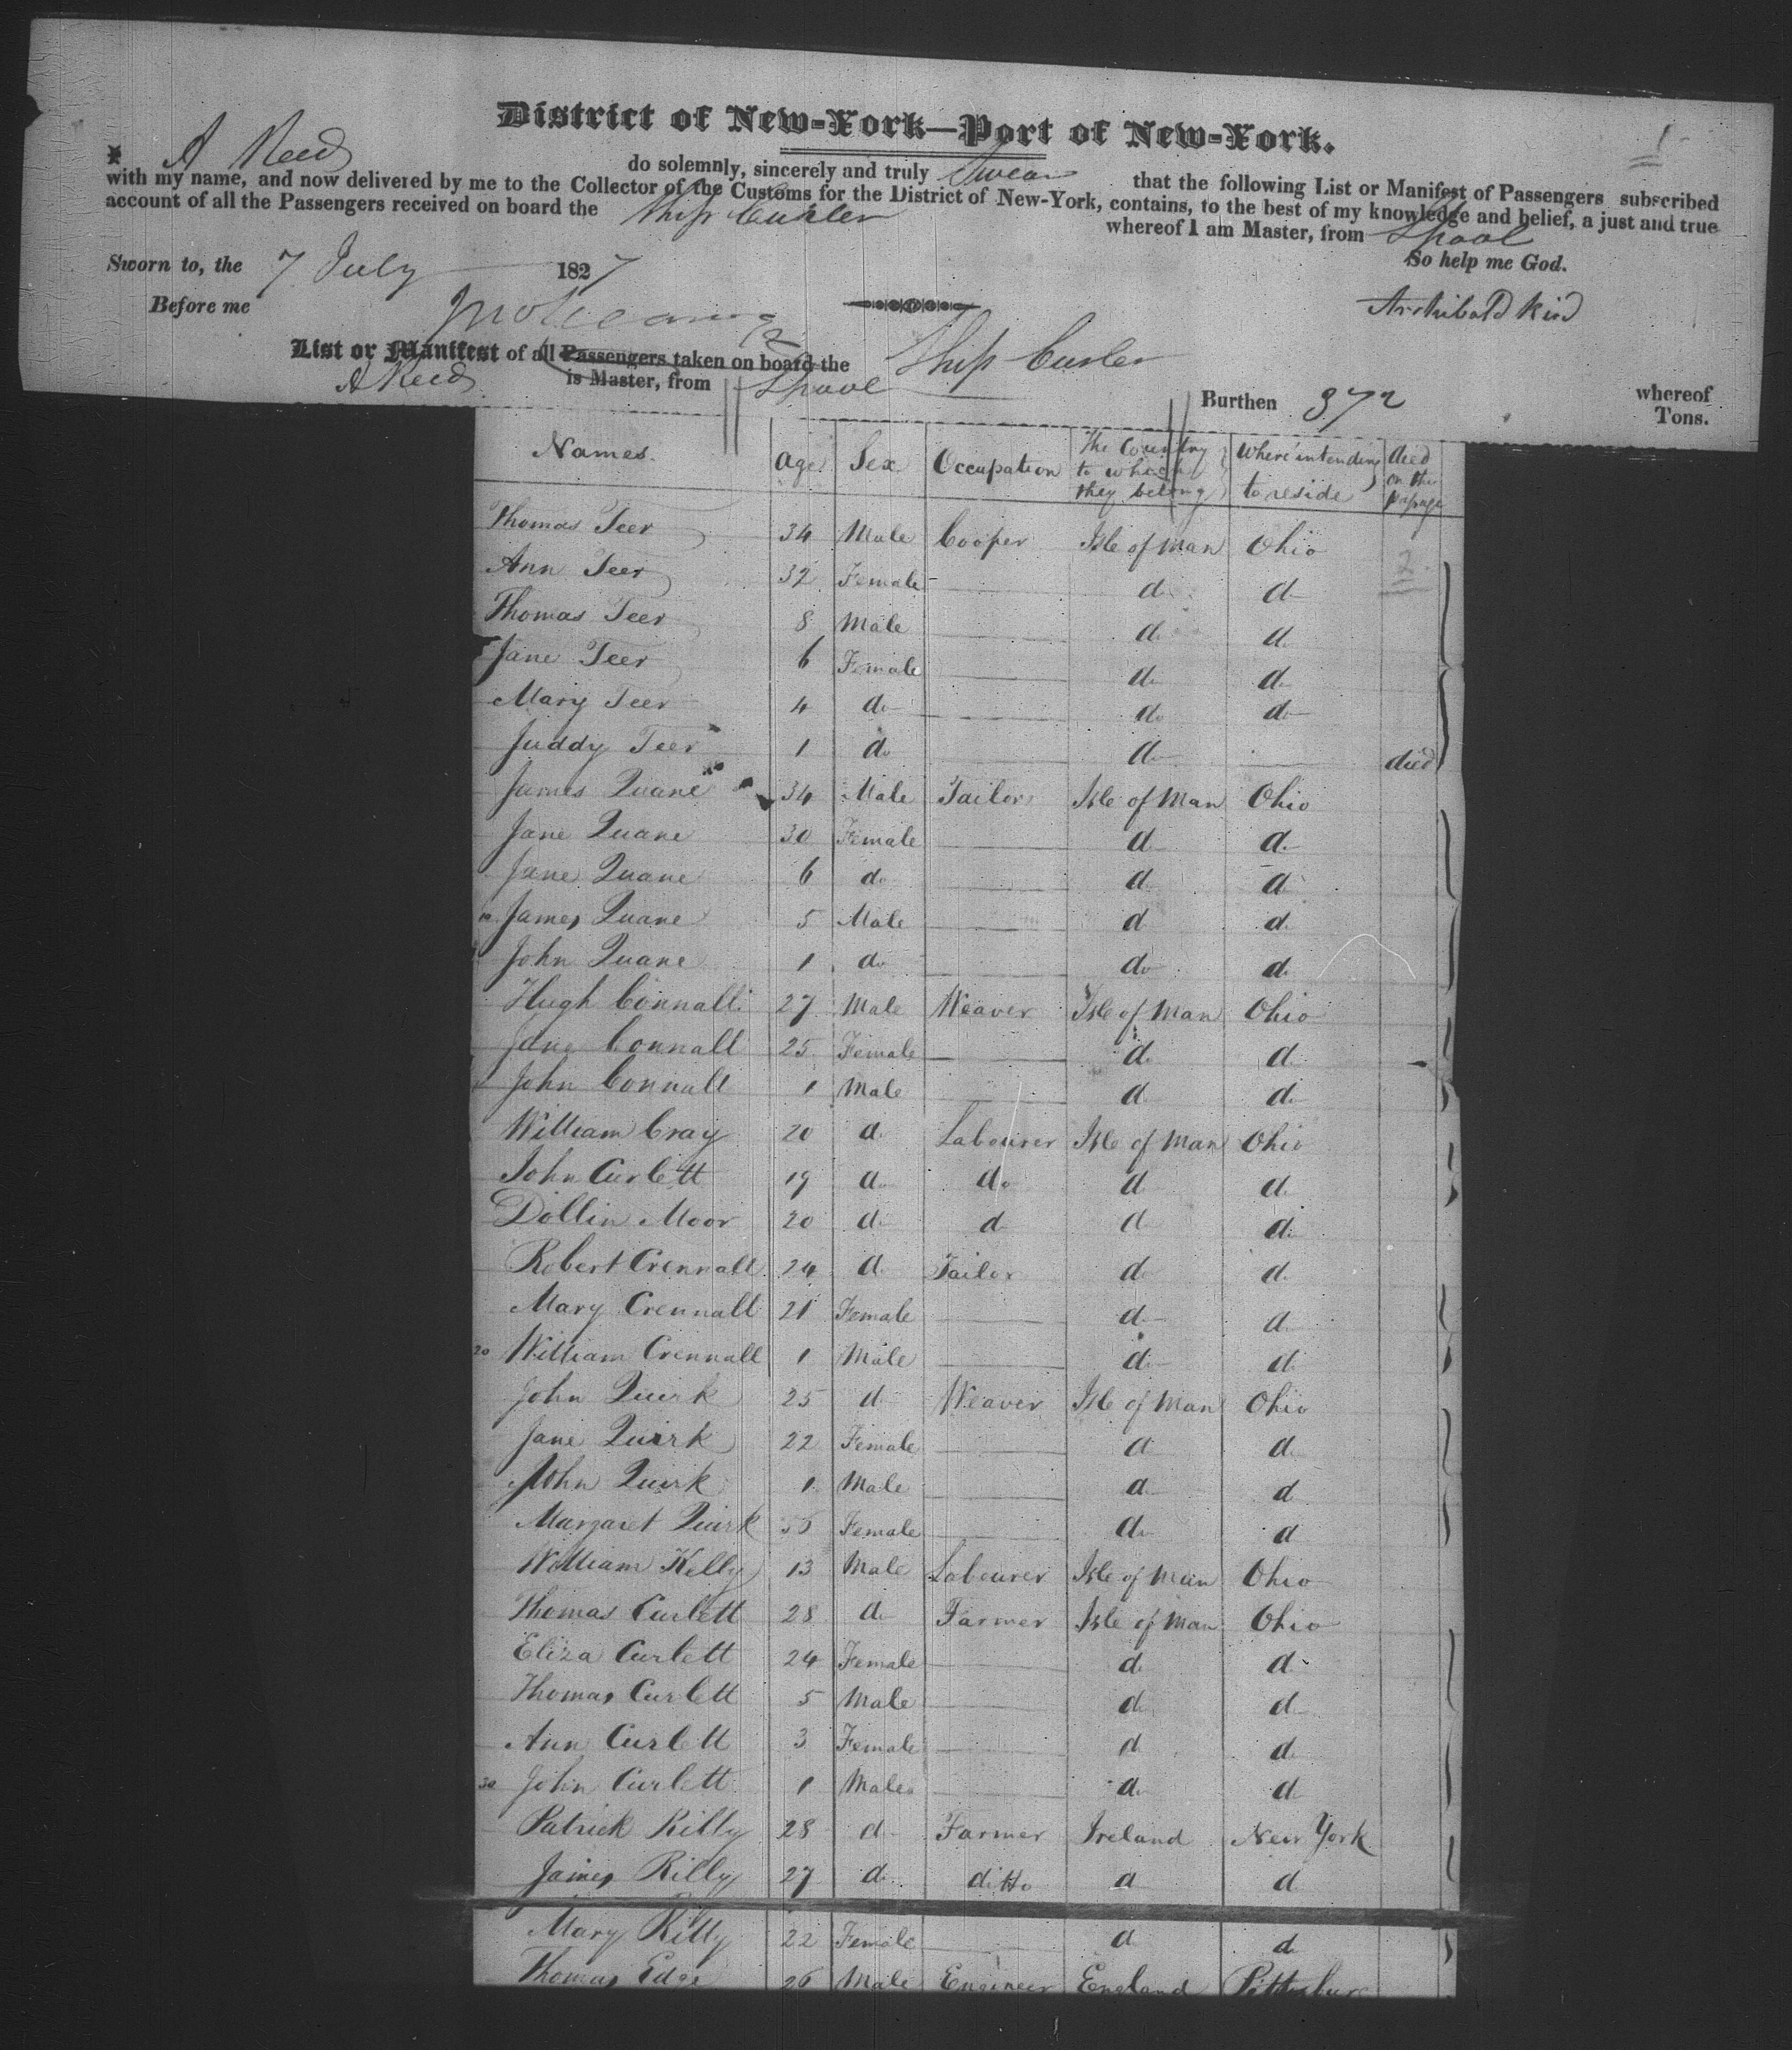 District of New-York—Port of New-York.
1
I, A Reed do solemnly, sincerely and truly Swear that the following List or Manifest of Passengers subscribed
with my name, and now delivered by me to the Collector of the Customs for the District of New-York, contains, to the best of my knowledge and belief, a just and true
account of all the Passengers received on board the Ship Curler whereof I am Master, from Lpool
So help me God.
Sworn to, the 7 July 1827
Before me
Archibald
List or Manifest of all Passengers taken on board the Ship Curler whereof
A Reed is Master, from Lpool Burthen 372 Tons.
Names. Age Sex Occupation The Country to which they belong Where intending to reside died on the passage
Thomas Teer 34 Male Cooper Isle of Man Ohio
2
Ann Teer 32 Female — do do
Thomas Teer 8 Male — do do
Jane Teer 6 Female — do do
Mary Teer 4 do — do do
Juddy Teer 1 do — do — died
James Quane 34 Male Tailor Isle of Man Ohio
Jane Quane 30 Female — d d
Jane Quane 6 do — d d
10 James Quane 5 Male — d d
John Quane 1 do — do d
Hugh Connall 27 Male Weaver Isle of Man Ohio
Jane Connall 25 Female — d d
John Connall 1 Male — d d
William Cray 20 d Labourer Isle of Man Ohio
John Curlett 19 d do d d
Dollin Moor 20 d d d d
Robert Crennall 24 d Tailor d d
Mary Crennall 21 Female — d d
20 William Crennall 1 Male — d d
John Quirk 25 d Weaver Isle of Man Ohio
Jane Quirk 22 Female — d d
John Quirk 1 Male — d d
Margaret Quirk Female — d d
William Kelly 13 Male Labourer Isle of Man Ohio
Thomas Curlett 28 d Farmer Isle of Man Ohio
Eliza Curlett 24 Female — d d
Thomas Curlett 5 Male — d d
Ann Curlett 3 Female — d d
30 John Curlett 1 Male — d d
Patrick Rilly 28 d Farmer Ireland New York
James Rilly 27 d ditto d d
Mary Rilly 22 Female — d d
Thomas Edge 26 Male Engineer England Pittsburg